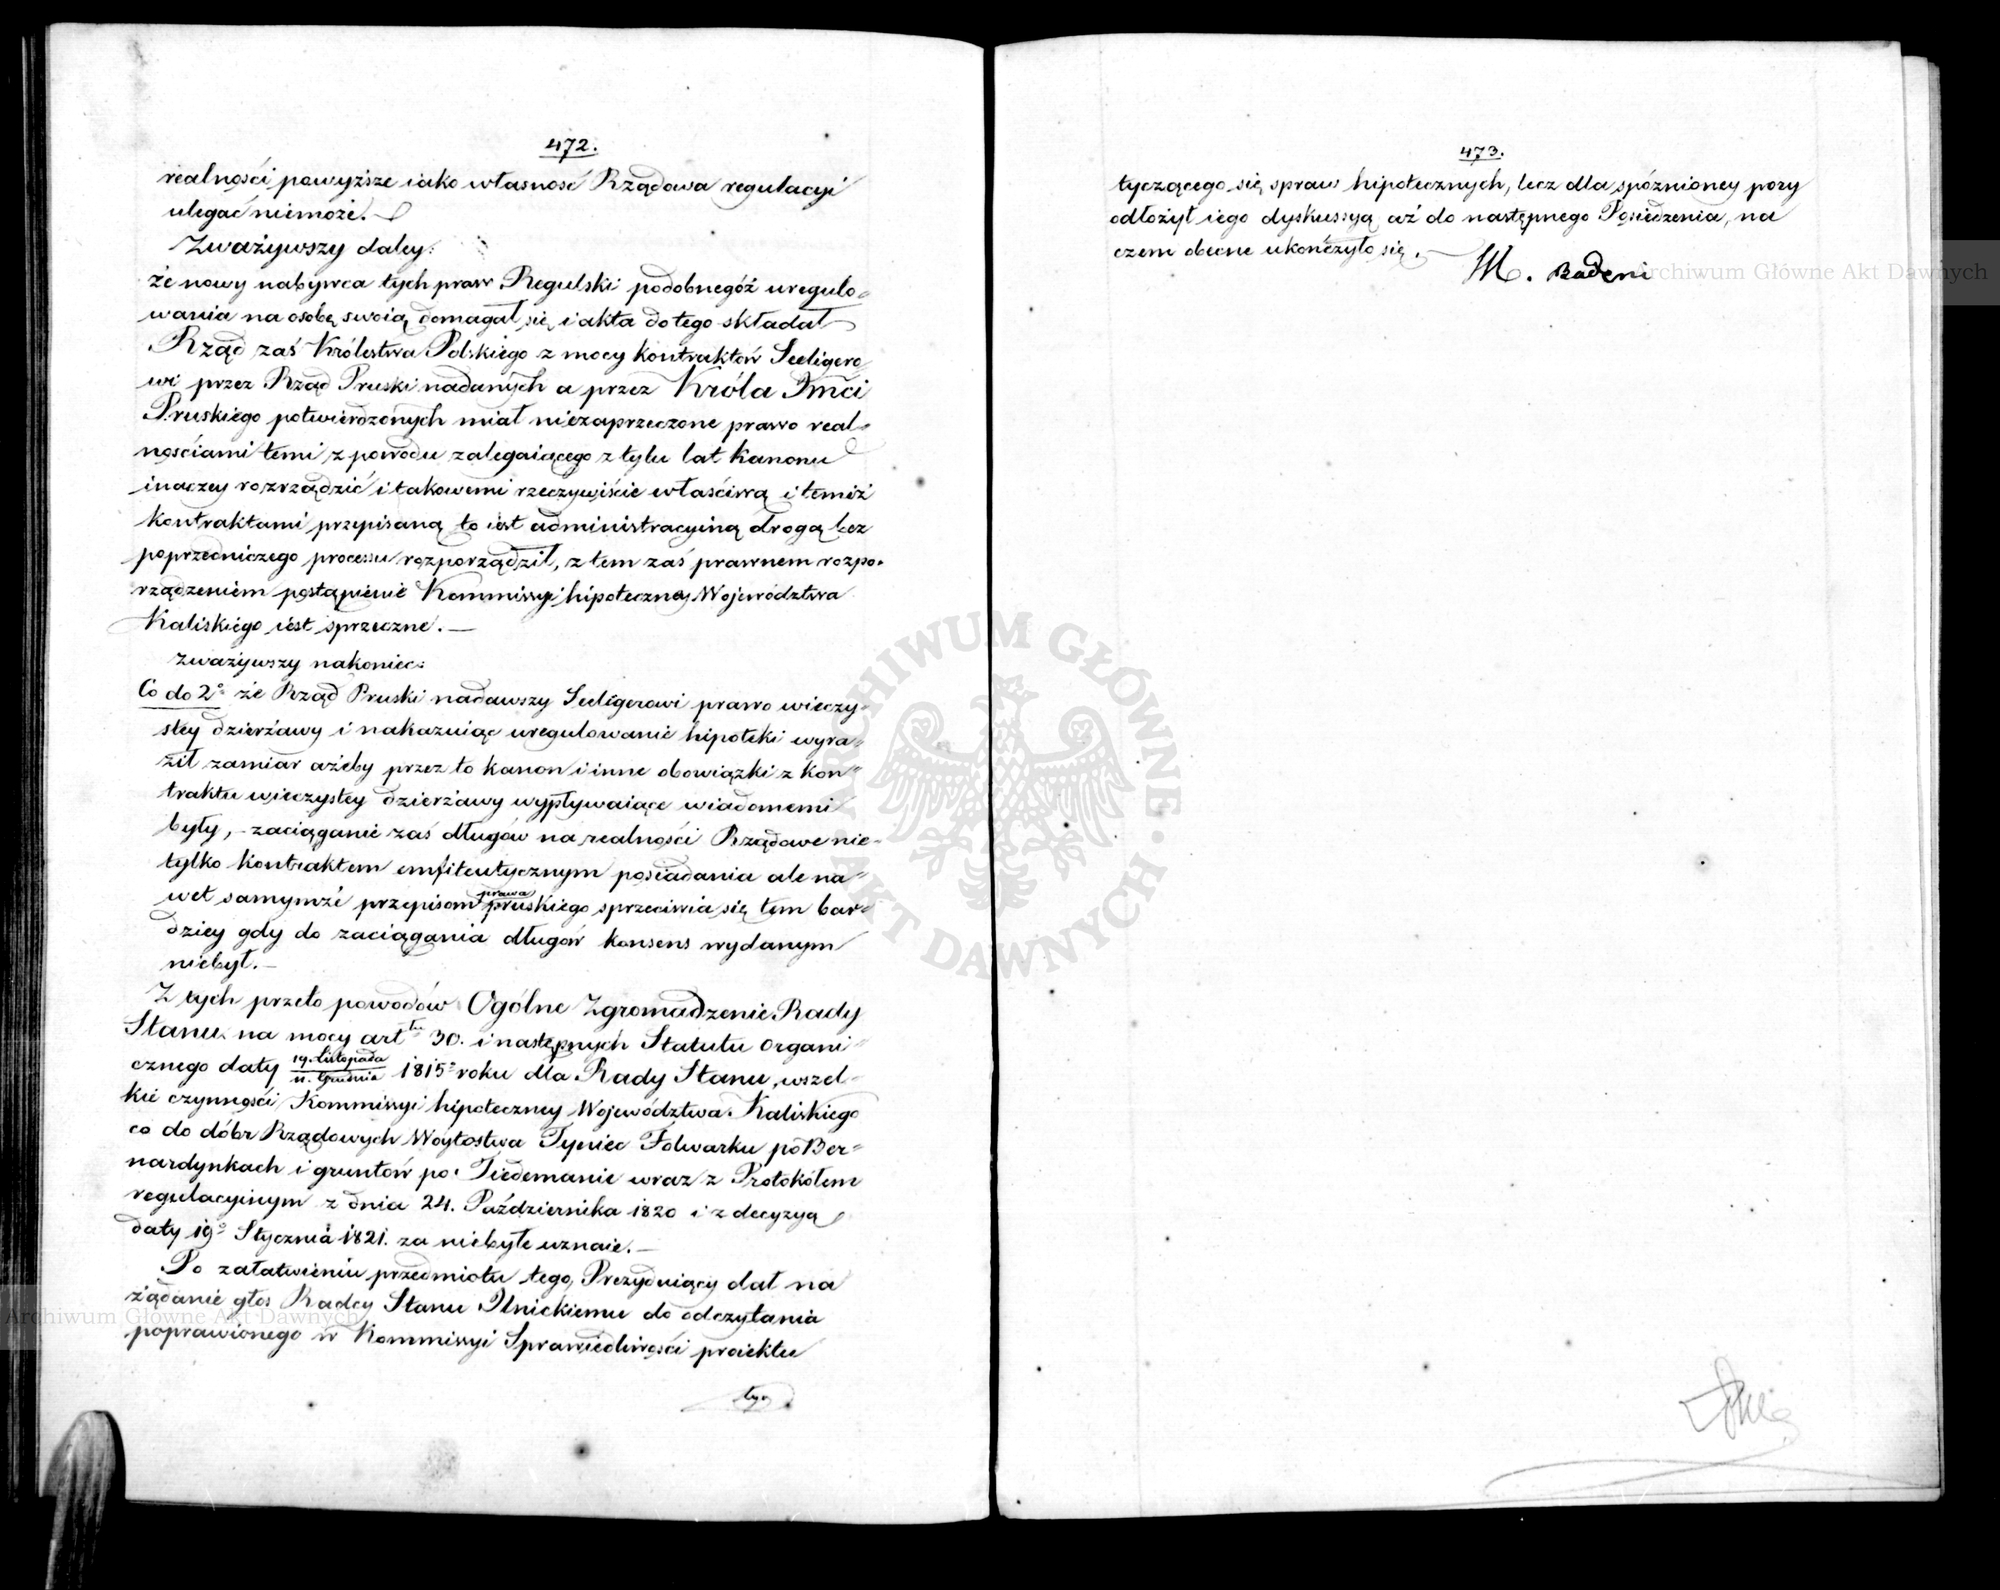 472.
realności powyższe iako własność Rządowa regulacyi
ulegać niemoże. —
Zważywszy daley:
że nowy nabywca tych praw Regulski podobnegóż uregulo-
wania na osobę swoią domagał się i akta do tego składał
Rząd zaś Królestwa Polskiego z mocy kontraktów Seeligero-
wi przez Rząd Pruski nadanych a przez Króla Jmci
Pruskiego potwierdzonych miał niezaprzeczone prawo real-
nościami temi z powodu zalegaiącego z tylu lat kanonu
inaczey rozrządzić i takowemi rzeczywiście właściwą i temiż
kontraktami przepisaną to iest administracyiną drogą bez
poprzedniczego processu rozporządził, z tem zaś prawnem rozpo-
rządzeniem postąpienie Kommissyi hipoteczney Województwa
Kaliskiego iest sprzeczne. —
Zważywszy nakoniec:
Co do 2° że Rząd Pruski nadawszy Seeligerowi prawo wieczy-
stey dzierżawy i nakazuiąc uregulowanie hipoteki wyra-
ził zamiar ażeby przez to kanon i inne obowiązki z kon-
traktu wieczystey dzierżawy wypływaiące wiadomemi
były, - zaciąganie zaś długów na realności Rządowe nie-
tylko kontraktem emfiteutycznym posiadania ale na-
wet samymże przepisom prawa pruskiego sprzeciwia się tem bar-
dziey gdy do zaciągania długów konsens wydanym
niebył. —
Z tych przeto powodów Ogólne Zgromadzenie Rady
Stanu na mocy art^tu 30. i następnych Statutu organi-
cznego daty 19. Listopada / 11. Grudnia 1815° roku dla Rady Stanu, wszel-
kie czynności Kommissyi hipoteczney Województwa Kaliskiego
co do dóbr Rządowych Woytostwa Tyniec Folwarku po Ber-
nardynkach i gruntów po Tiedemanie wraz z Protokółem
regulacyinym z dnia 24. Października 1820 i z decyzyą
daty 19° Stycznia 1821. za niebyłe uznaie. —
Po załatwieniu przedmiotu tego, Prezyduiący dał na
żądanie głos Radcy Stanu Ilnickiemu do odczytania
poprawionego w Kommissyi Sprawiedliwości proiektu
tyc
473.
tyczącego się spraw hipotecznych, lecz dla spóźnioney pory
odłożył iego dyskussyą aż do następnego Posiedzenia, na
czem obecne ukończyło się. —
M. Badeni
Archiwum Główne Akt Dawnych
Archiwum Główne Akt Dawnych
ARCHIWUM GŁÓWNE AKT DAWNYCH